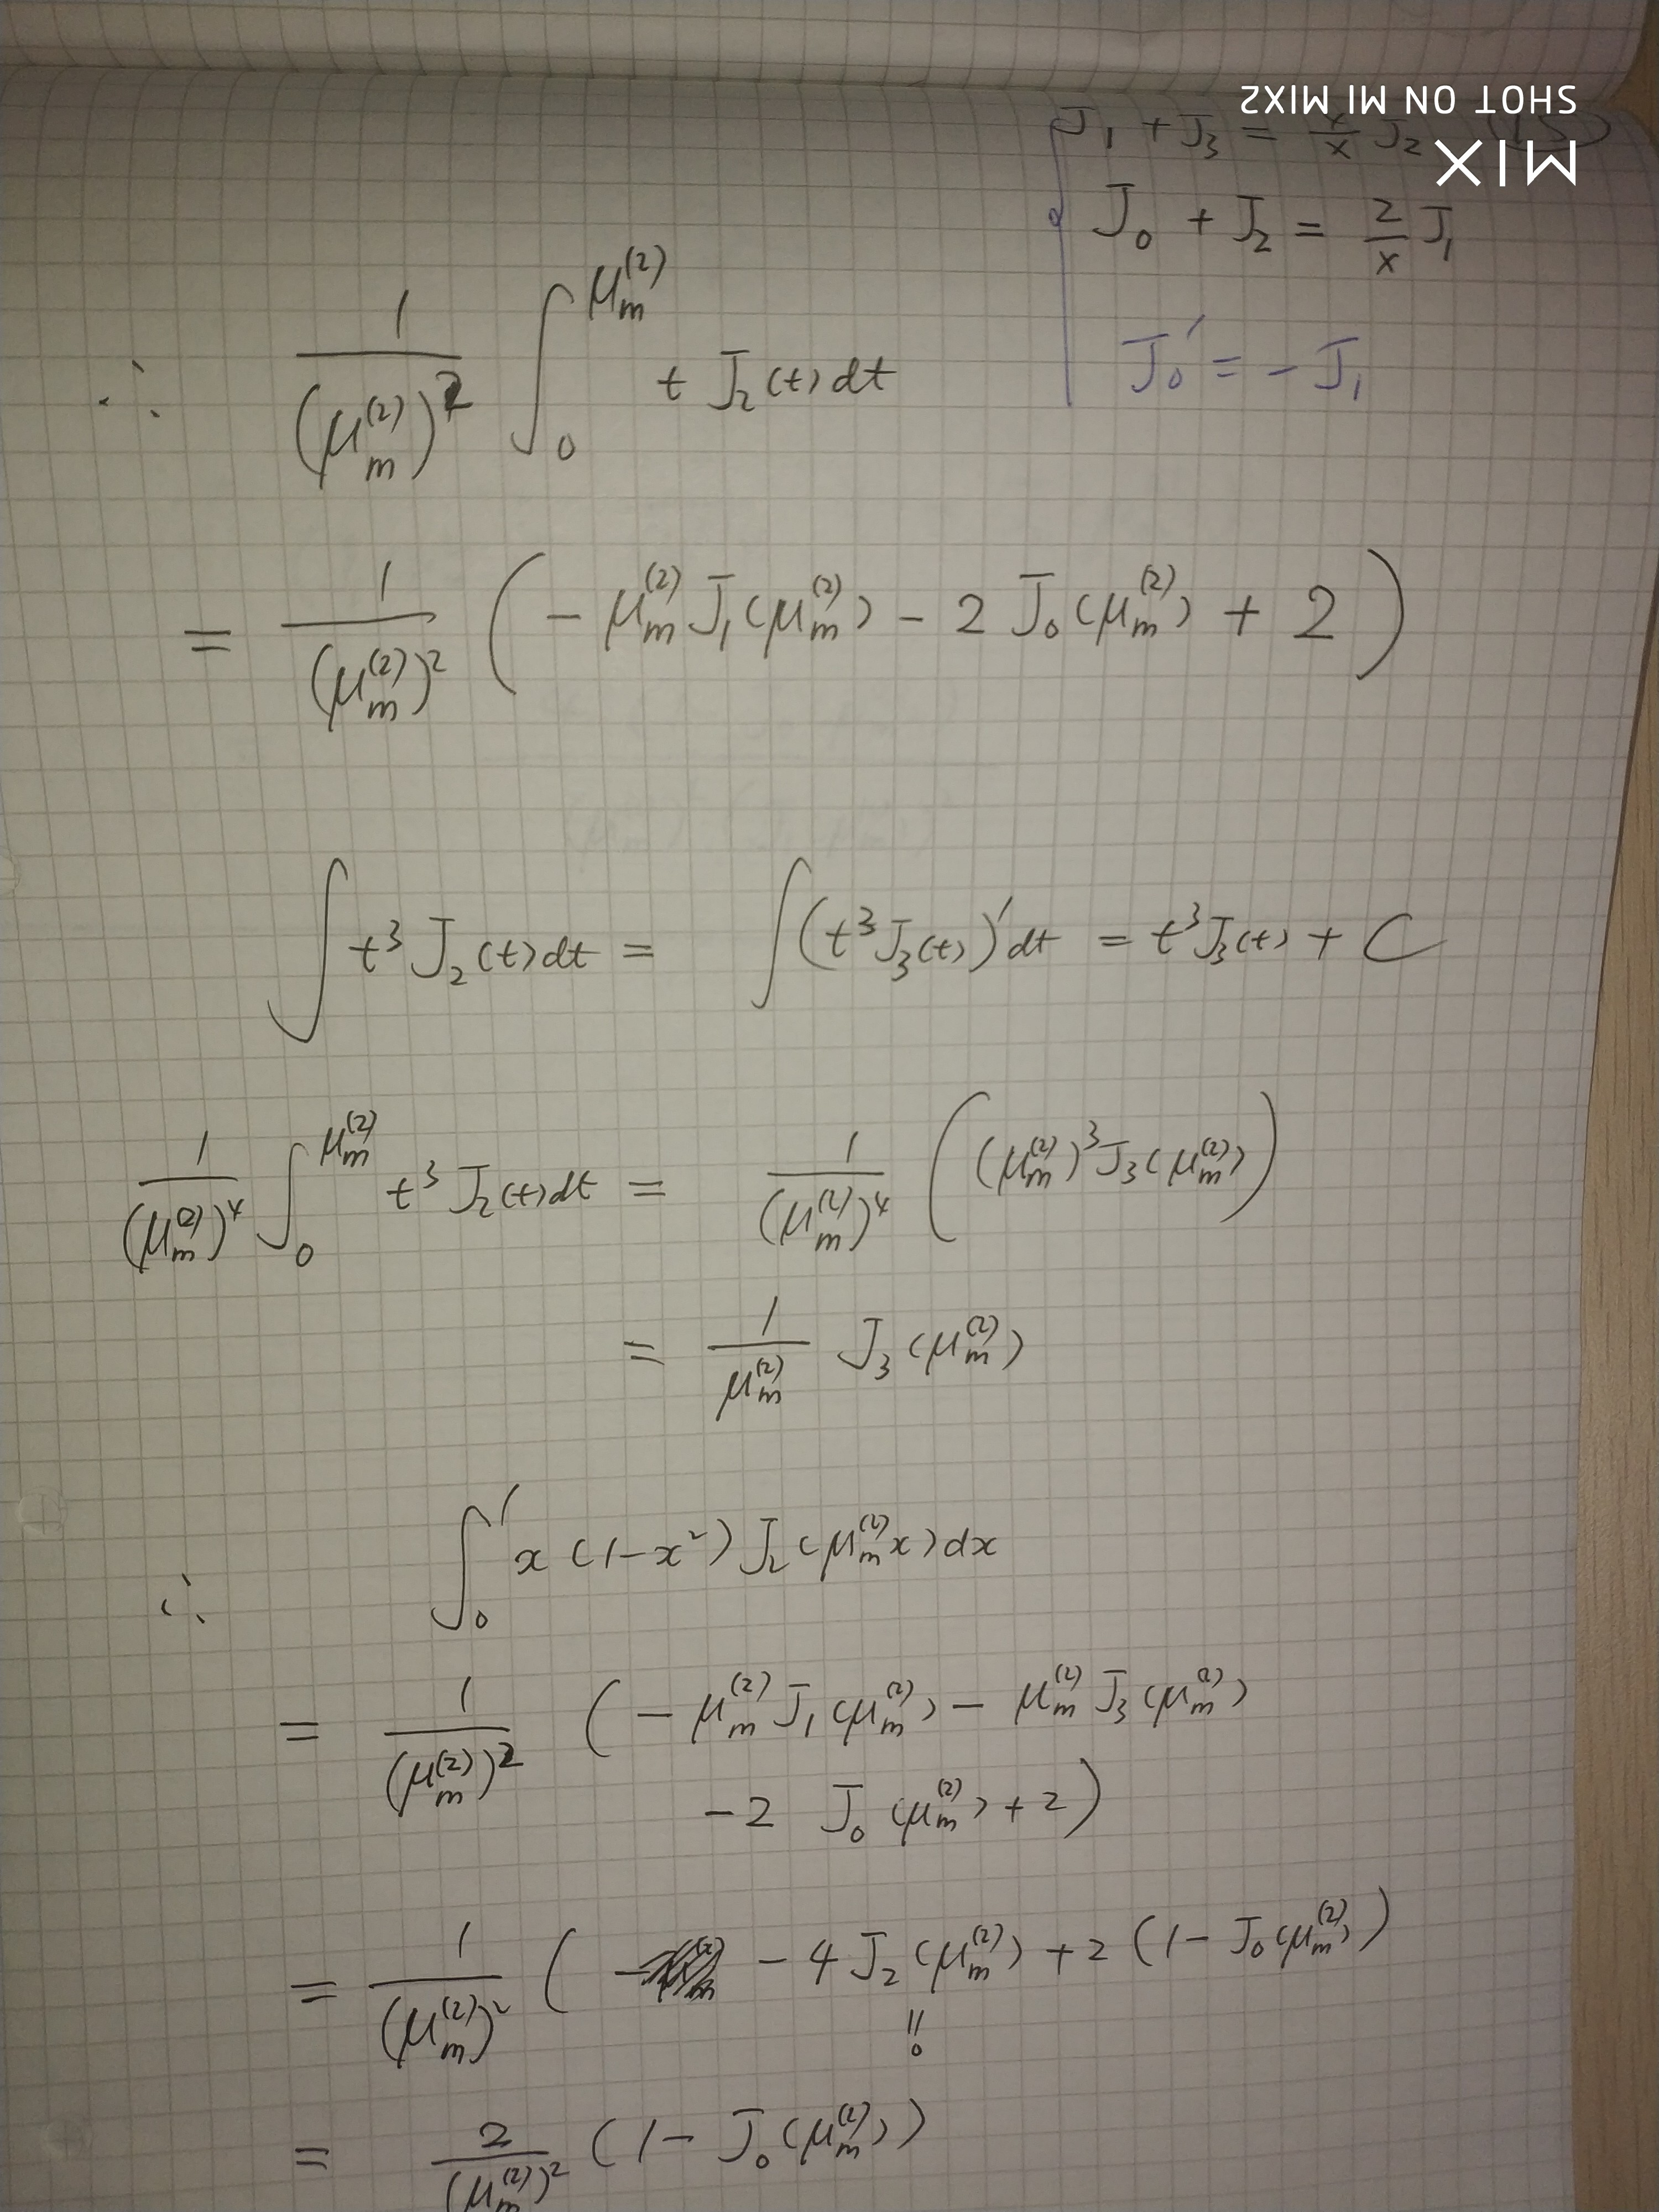 SHOT ON MI MIX2
MIX
J₁ + J₃ = 4/x J₂ (15)
J₀ + J₂ = 2/x J₁
J₀′ = - J₁
∴ 1/(μₘ⁽²⁾)² ∫₀^(μₘ⁽²⁾) t J₂(t) dt
= 1/(μₘ⁽²⁾)² ( - μₘ⁽²⁾ J₁(μₘ⁽²⁾) - 2 J₀(μₘ⁽²⁾) + 2 )
∫ t³ J₂(t) dt = ∫ (t³ J₃(t))′ dt = t³ J₃(t) + C
1/(μₘ⁽²⁾)⁴ ∫₀^(μₘ⁽²⁾) t³ J₂(t) dt = 1/(μₘ⁽²⁾)⁴ ( (μₘ⁽²⁾)³ J₃(μₘ⁽²⁾) )
= 1/μₘ⁽²⁾ J₃(μₘ⁽²⁾)
∴ ∫₀¹ x (1-x²) J₂(μₘ⁽²⁾x) dx
= 1/(μₘ⁽²⁾)² ( - μₘ⁽²⁾ J₁(μₘ⁽²⁾) - μₘ⁽²⁾ J₃(μₘ⁽²⁾)
- 2 J₀(μₘ⁽²⁾) + 2 )
= 1/(μₘ⁽²⁾)² ( - 4 J₂(μₘ⁽²⁾) + 2 (1 - J₀(μₘ⁽²⁾) )
‖
0
= 2/(μₘ⁽²⁾)² (1 - J₀(μₘ⁽²⁾))